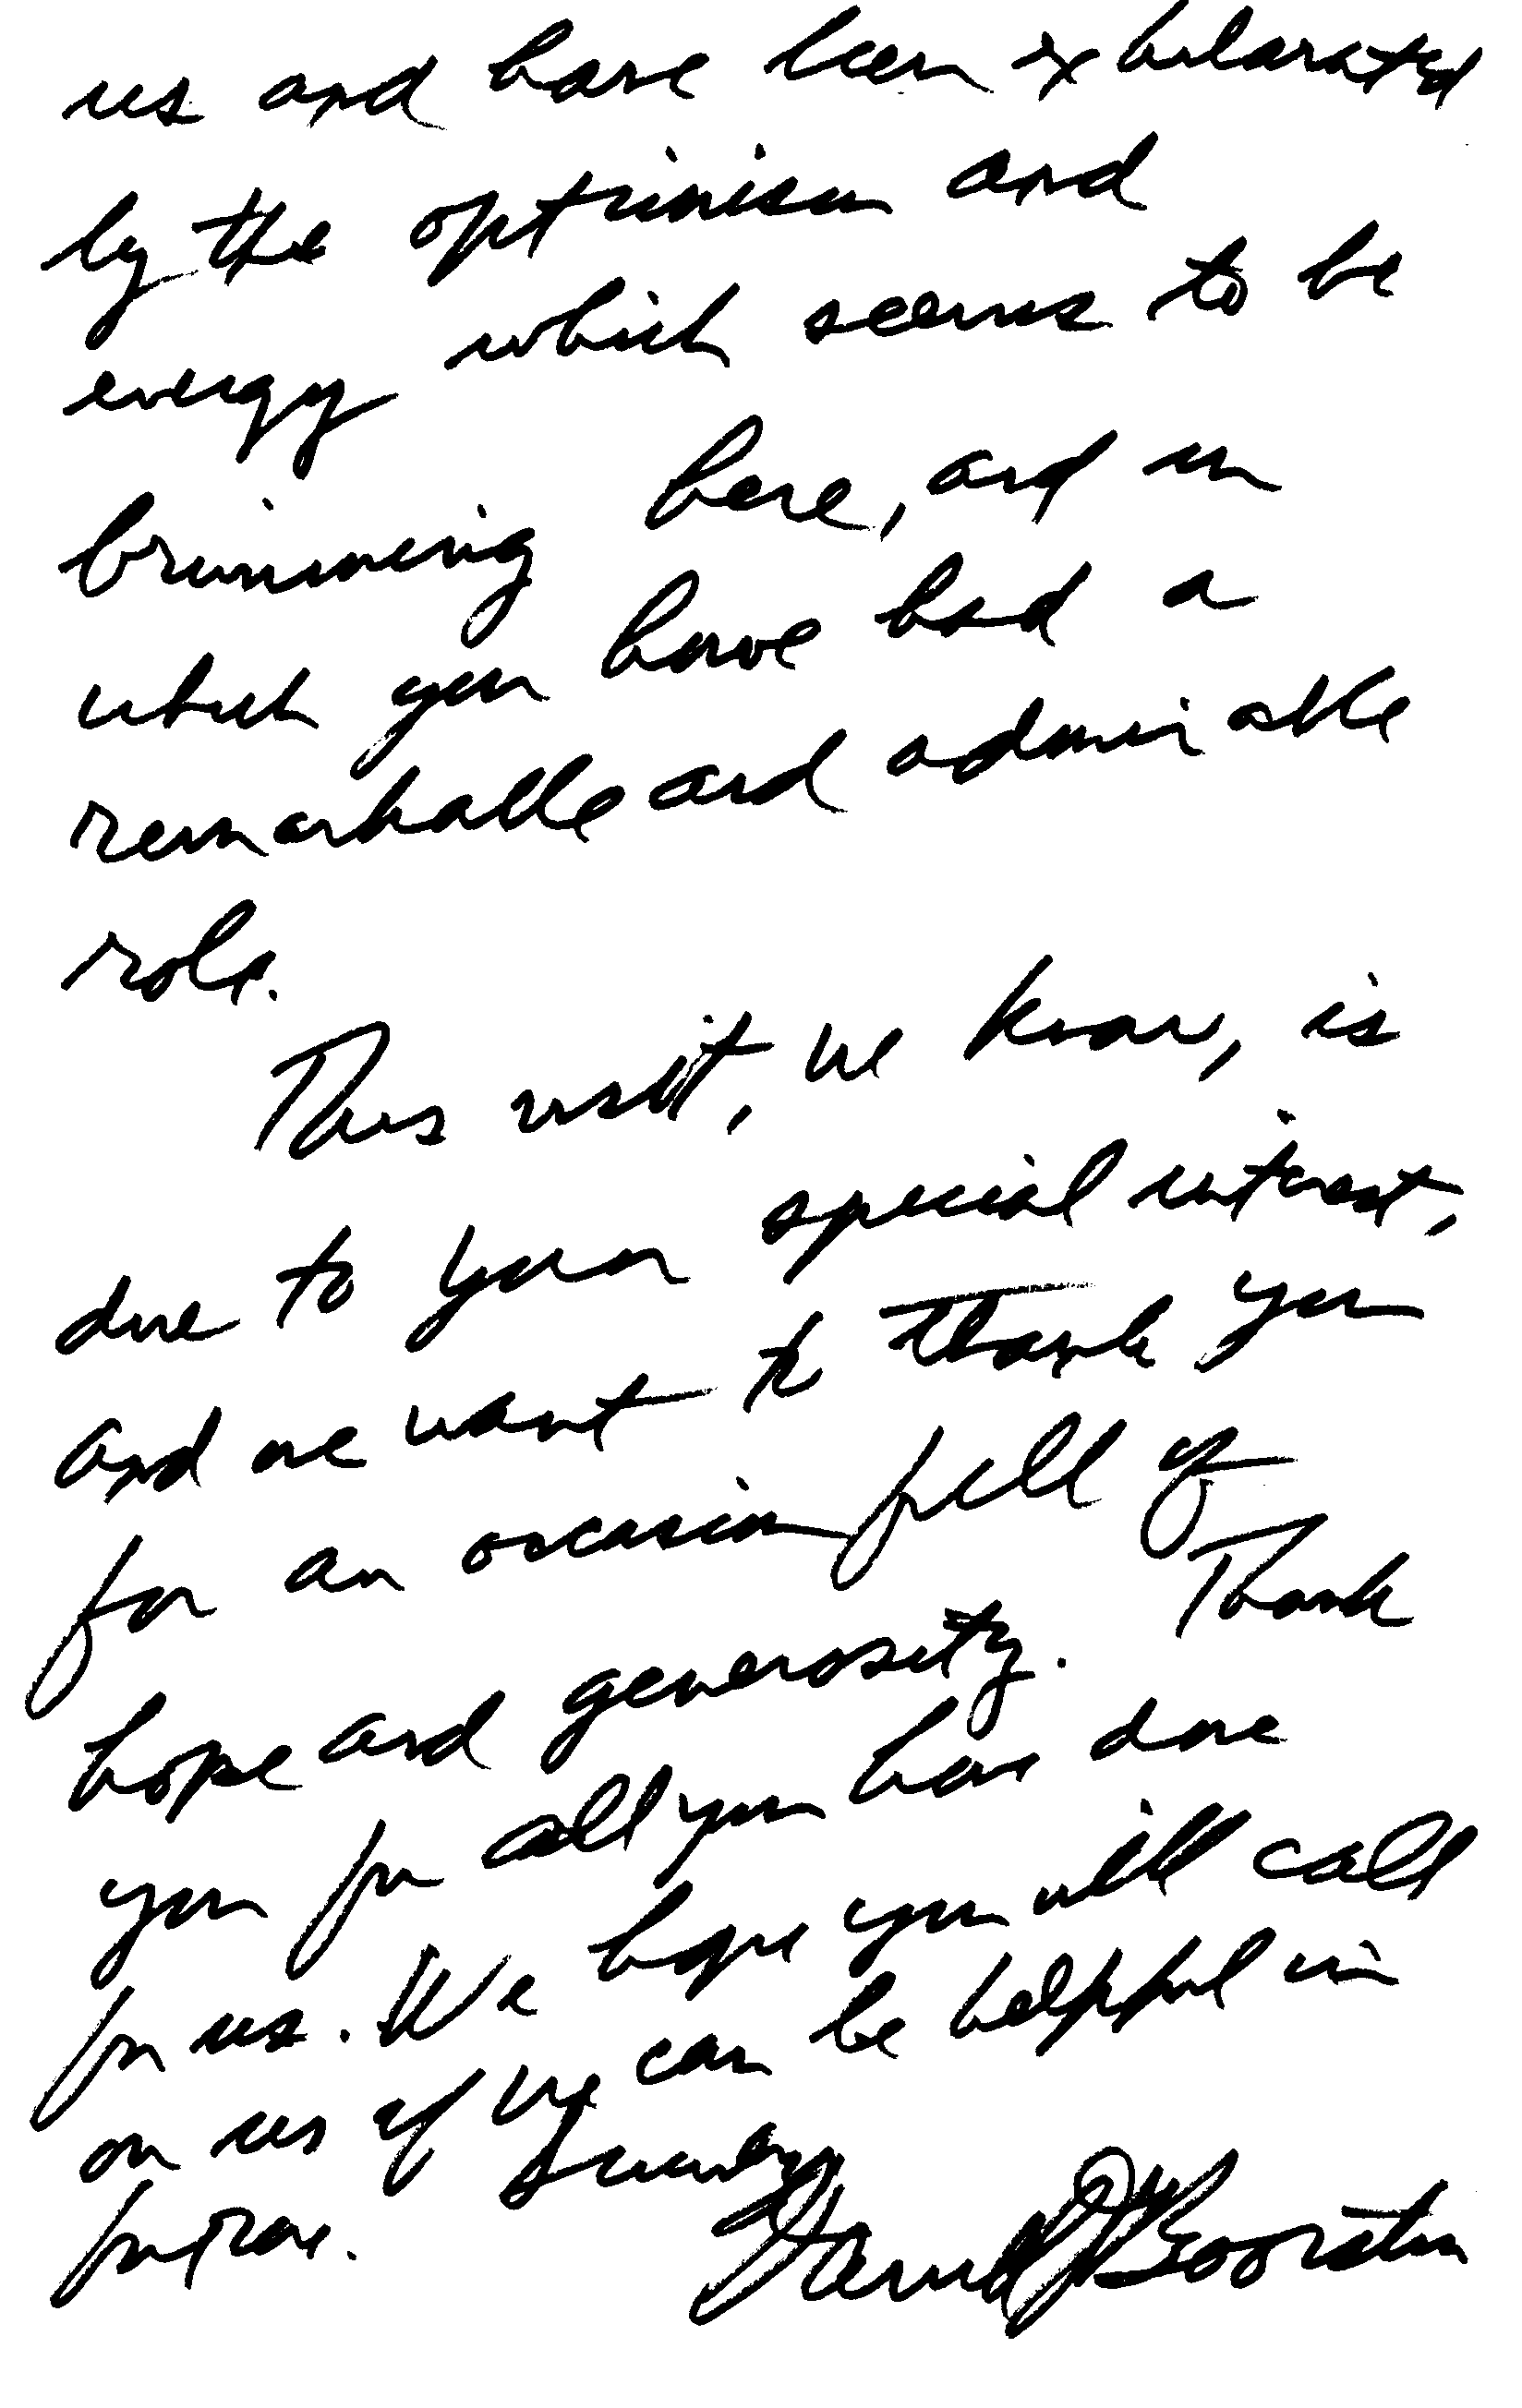 us and have been exhilarated
by the optimism and
energy which seems to be
brimming here, and in
which you have had a
remarkable and admirable
role.
This visit, we know, is
due to your special interest,
and we want to thank you
for an occasion full of
hope and generosity. Thank
you for all you have done
for us. We hope you will call
on us if we can be helpful in
future. Sincerely
Daniel J Boorstin